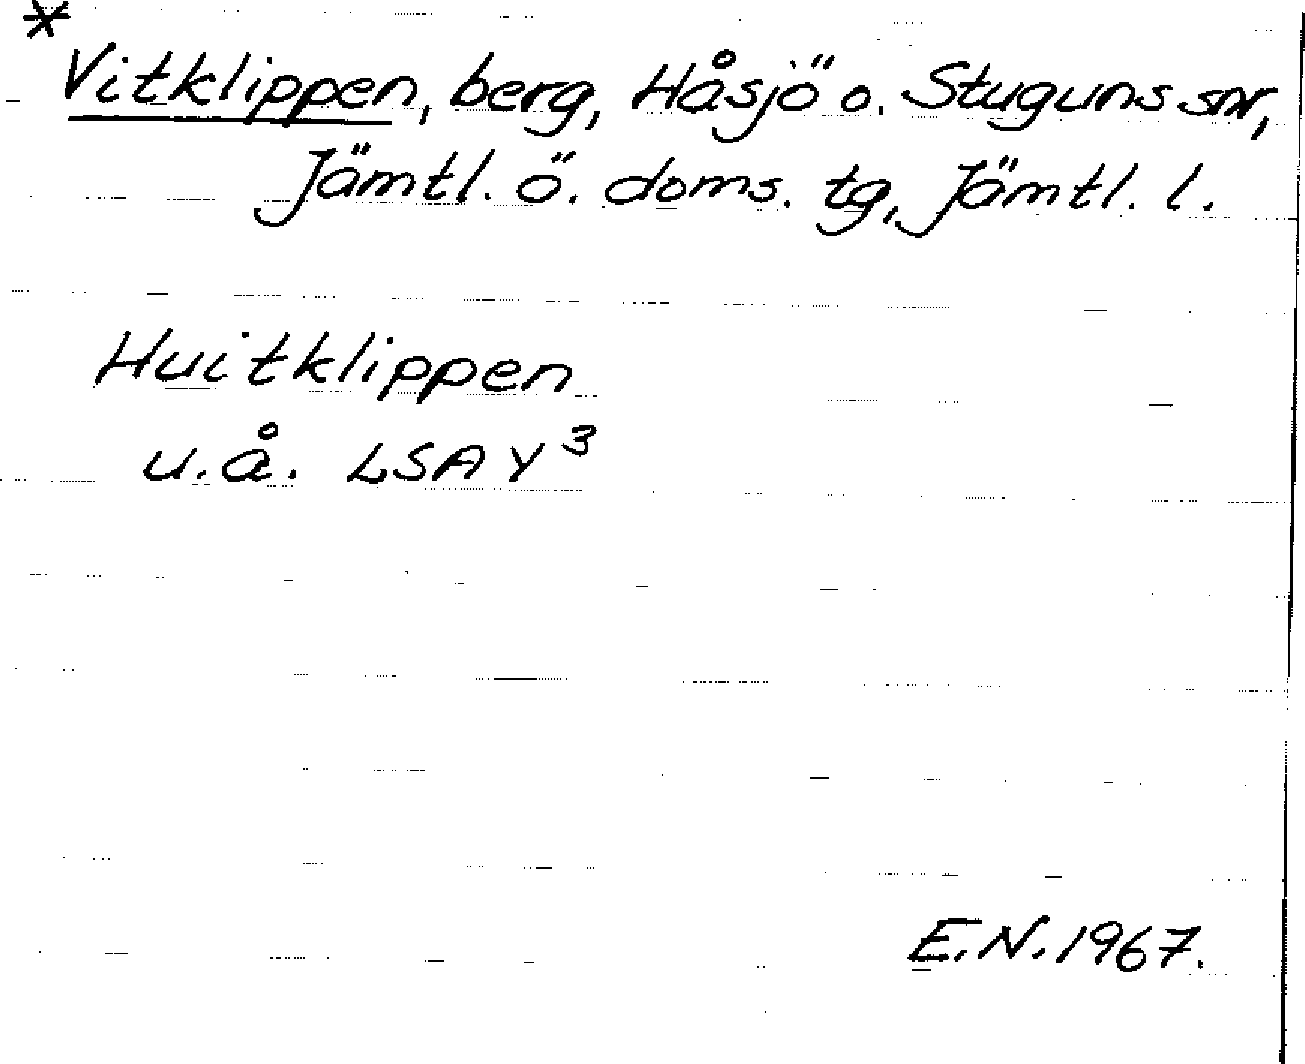 *
Vitklippen, berg, Håsjö o. Stuguns snr,
Jämtl. ö. doms. tg, Jämtl. l.
Huitklippen
u.å. LSA Y³
E.N. 1967.